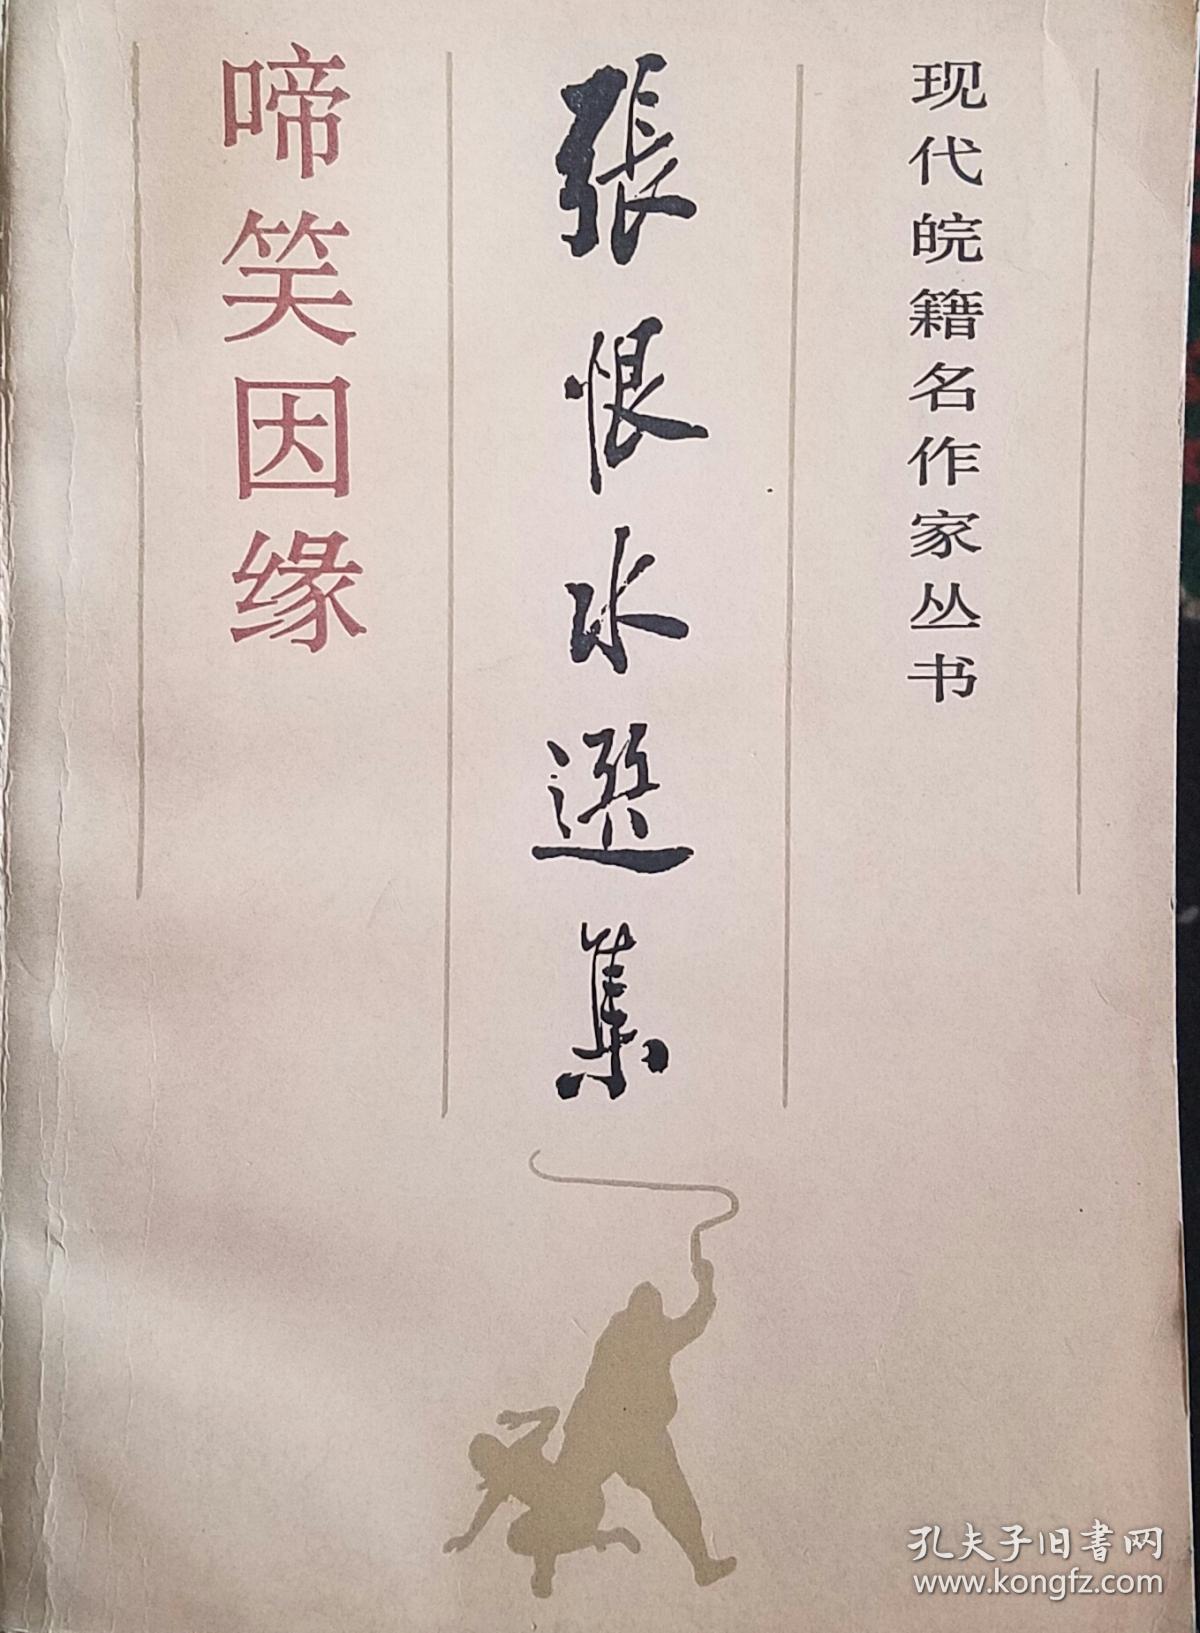 现代皖籍名作家丛书
張恨水選集
啼笑因缘
孔夫子旧書网
www.kongfz.com